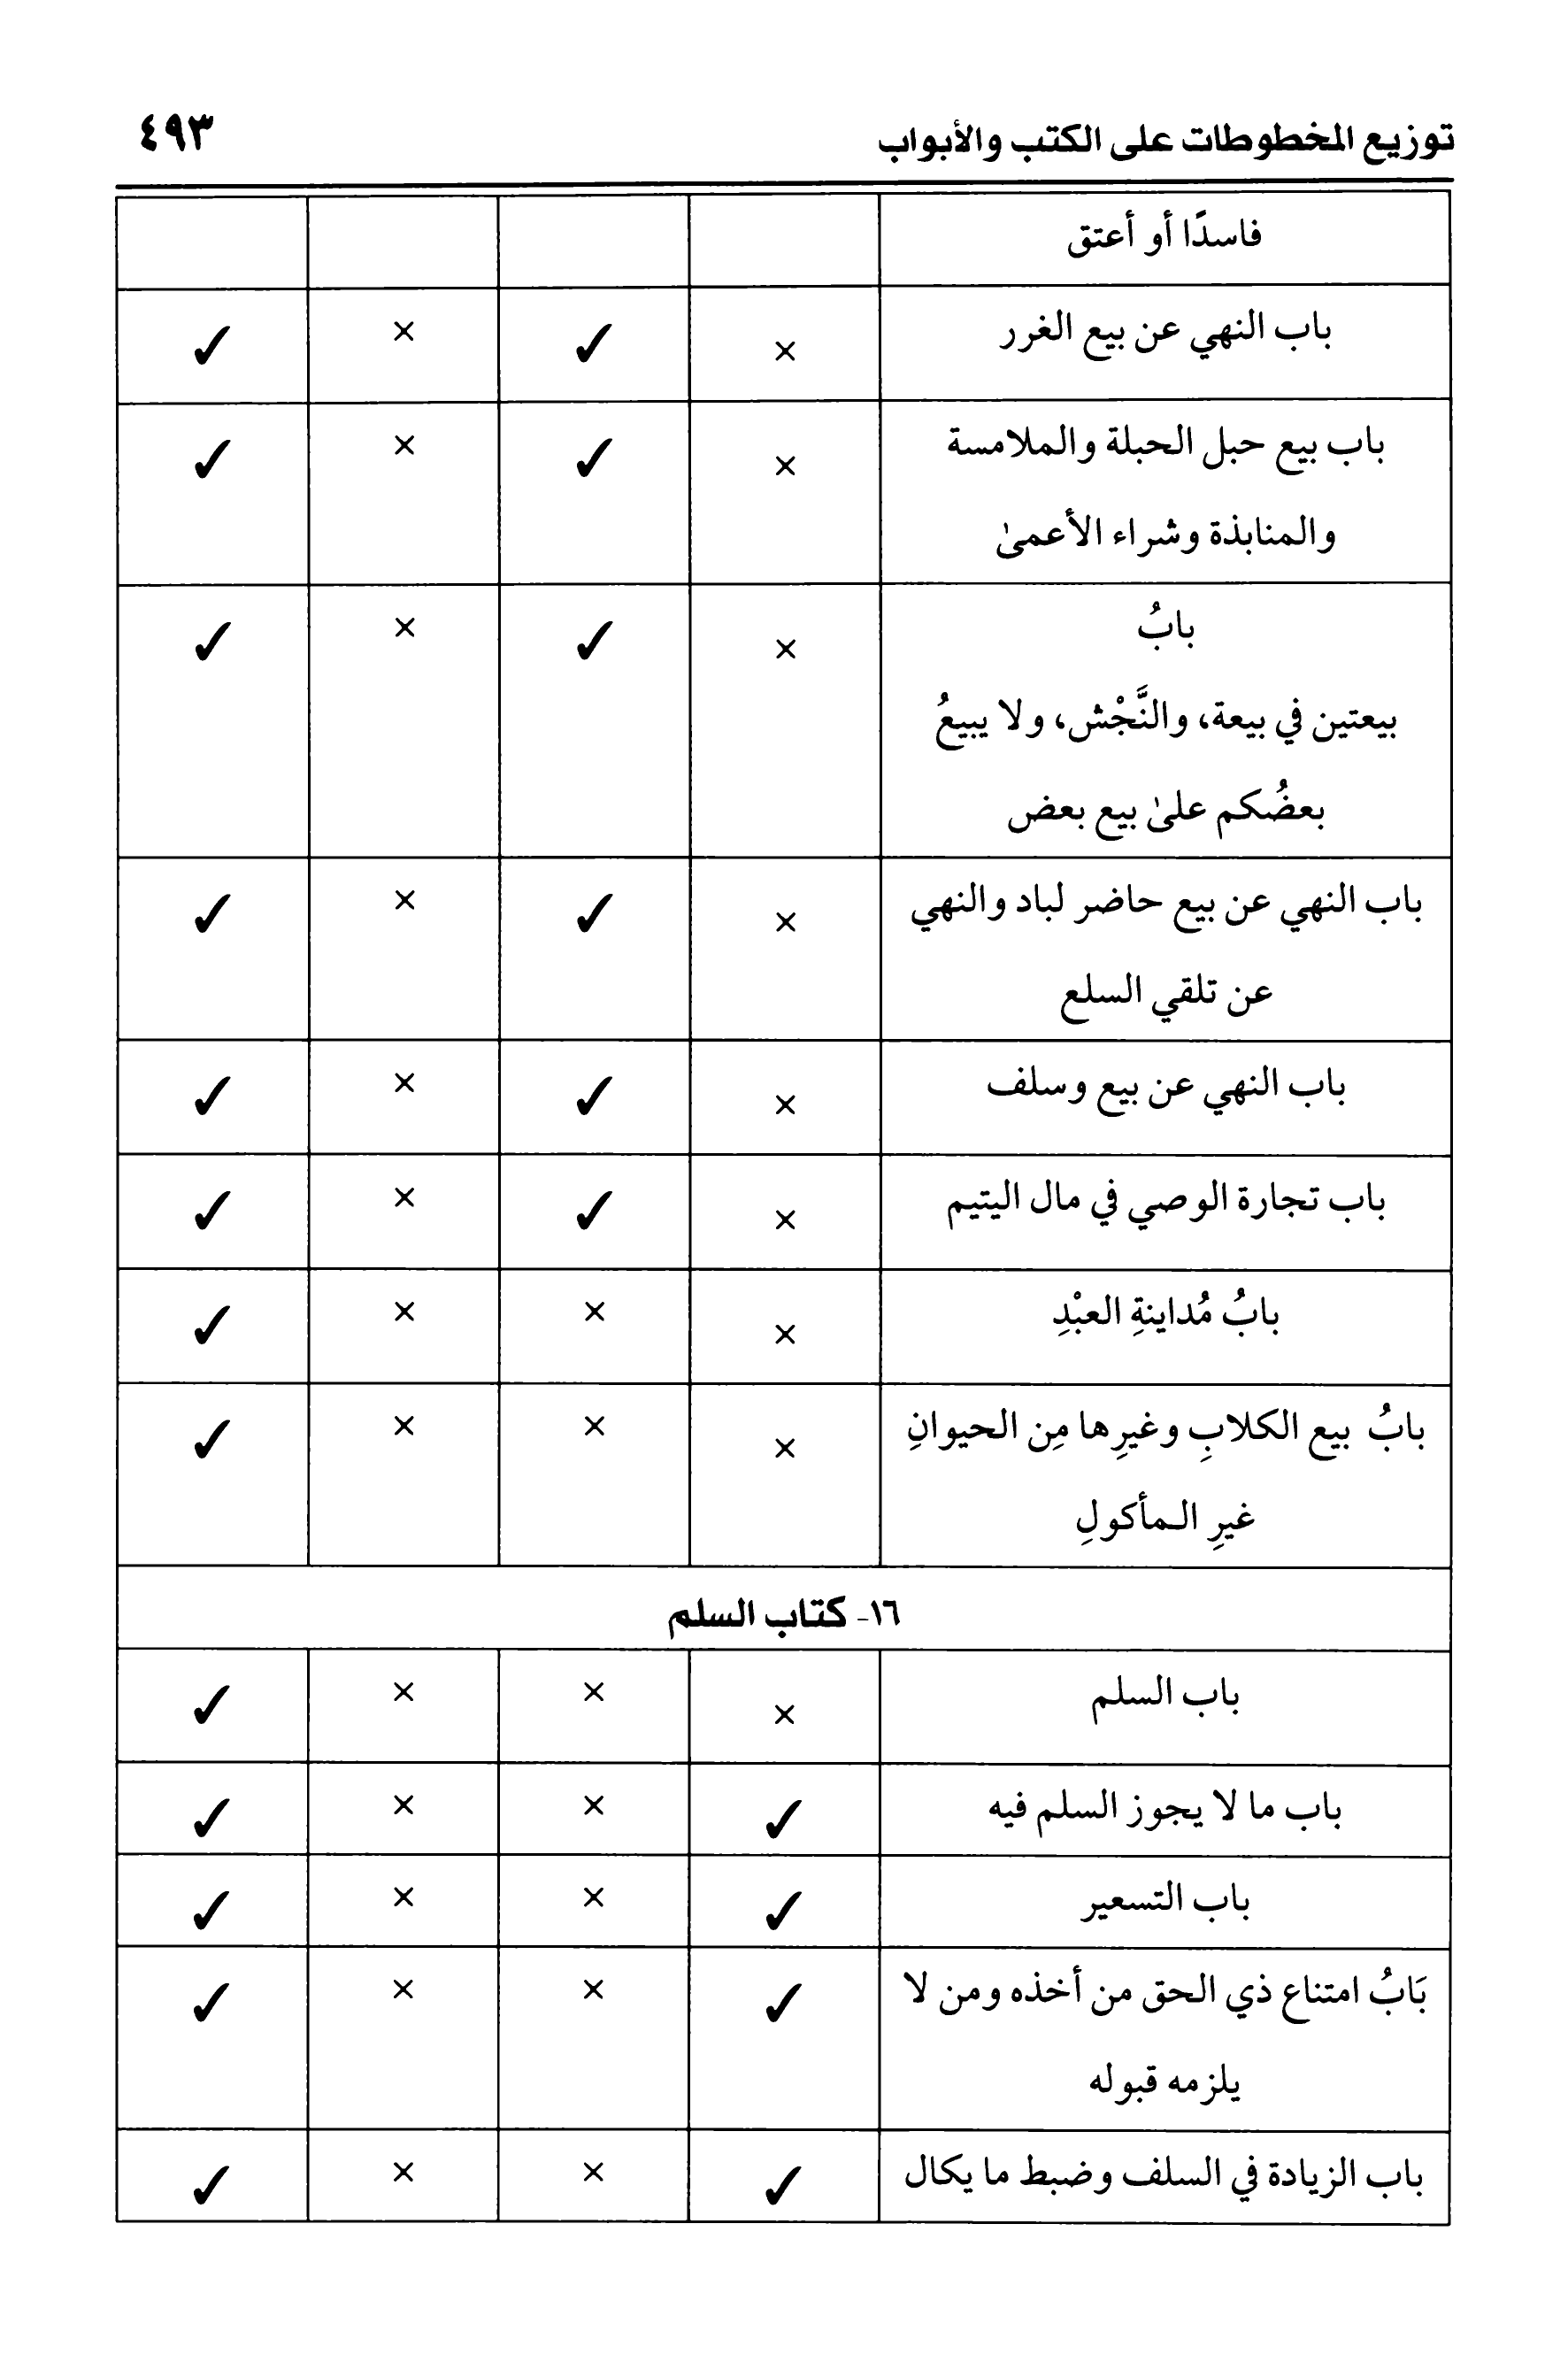 توزيع المخطوطات على الكتب والأبواب ٤٩٣
فاسدًا أو أعتق
باب النهي عن بيع الغرر × ✓ × ✓
باب بيع حبل الحبلة والملامسة × ✓ × ✓
والمنابذة وشراء الأعمىٰ
بابُ × ✓ × ✓
بيعتين في بيعة، والنَّجْش، ولا يبيعُ
بعضُكم علىٰ بيع بعض
باب النهي عن بيع حاضر لباد والنهي × ✓ × ✓
عن تلقي السلع
باب النهي عن بيع وسلف × ✓ × ✓
باب تجارة الوصي في مال اليتيم × ✓ × ✓
بابُ مُداينةِ العبْدِ × × × ✓
بابُ بيع الكلابِ وغيرِها مِن الحيوانِ × × × ✓
غيرِ المأكولِ
١٦- كتاب السلم
باب السلم × × × ✓
باب ما لا يجوز السلم فيه ✓ × × ✓
باب التسعير ✓ × × ✓
بَابُ امتناع ذي الحق من أخذه ومن لا ✓ × × ✓
يلزمه قبوله
باب الزيادة في السلف وضبط ما يكال ✓ × × ✓